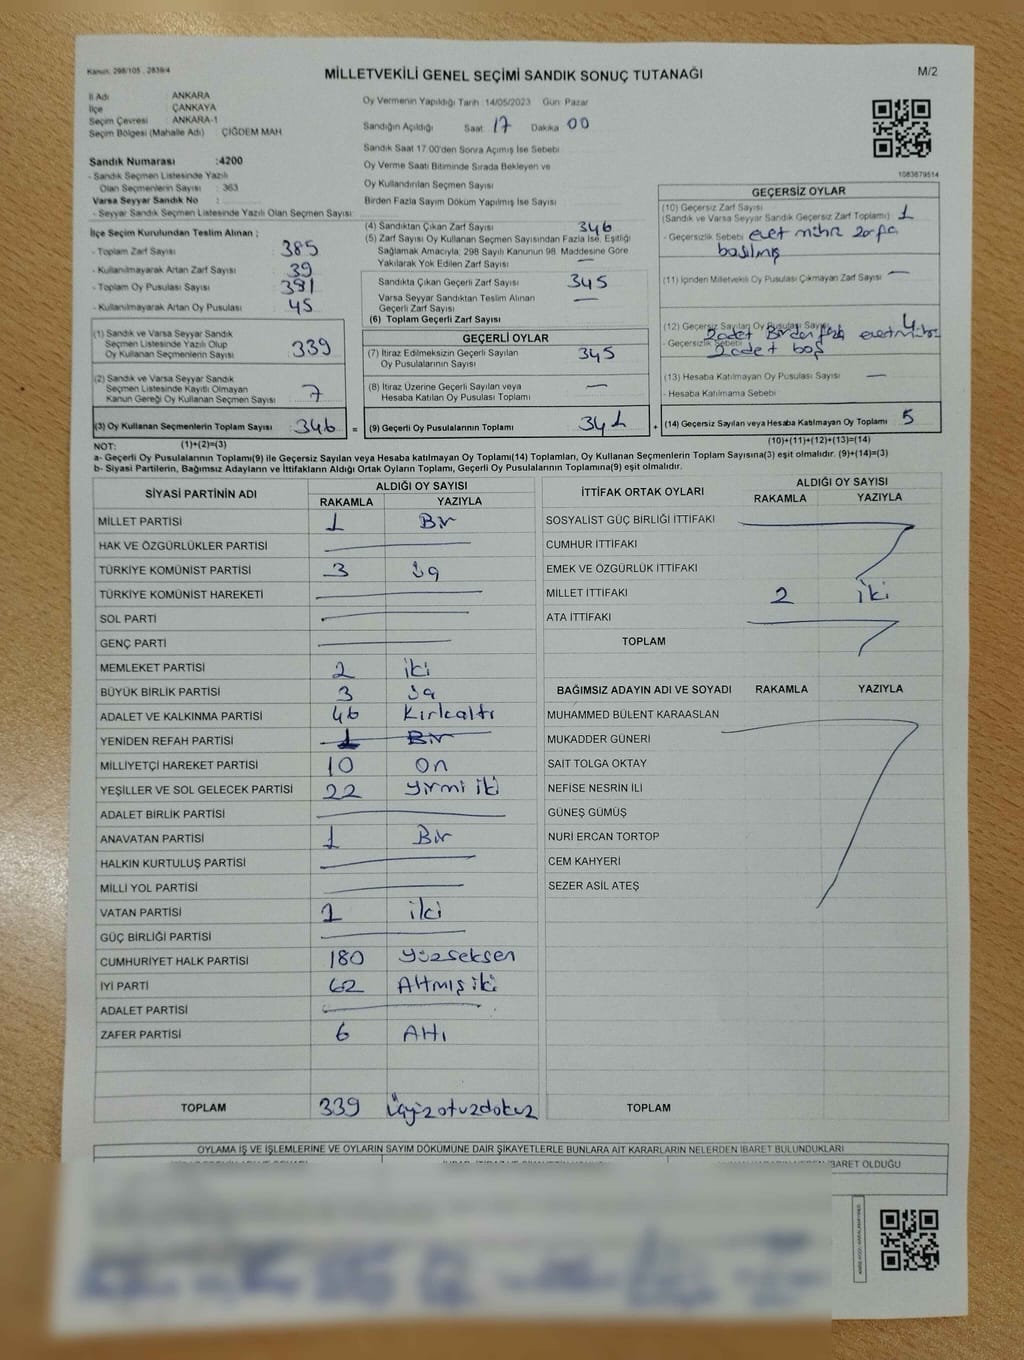 Kanun: 298/105, 2839/4
MİLLETVEKİLİ GENEL SEÇİMİ SANDIK SONUÇ TUTANAĞI
M/2
İl Adı ANKARA
İlçe ÇANKAYA
Seçim Çevresi ANKARA-1
Seçim Bölgesi (Mahalle Adı) ÇİĞDEM MAH
Sandık Numarası :4200
- Sandık Seçmen Listesinde Yazılı
Olan Seçmenlerin Sayısı : 363
Varsa Seyyar Sandık No :
- Seyyar Sandık Seçmen Listesinde Yazılı Olan Seçmen Sayısı
İlçe Seçim Kurulundan Teslim Alınan ;
- Toplam Zarf Sayısı 385
- Kullanılmayarak Artan Zarf Sayısı 39
- Toplam Oy Pusulası Sayısı 391
- Kullanılmayarak Artan Oy Pusulası 45
(1) Sandık ve Varsa Seyyar Sandık
Seçmen Listesinde Yazılı Olup
Oy Kullanan Seçmenlerin Sayısı 339
(2) Sandık ve Varsa Seyyar Sandık
Seçmen Listesinde Kayıtlı Olmayan
Kanun Gereği Oy Kullanan Seçmen Sayısı 7
(3) Oy Kullanan Seçmenlerin Toplam Sayısı 346 =
Oy Vermenin Yapıldığı Tarih 14/05/2023 Gün Pazar
Sandığın Açıldığı Saat 17 Dakika 00
Sandık Saat 17.00'den Sonra Açımış İse Sebebi
Oy Verme Saati Bitiminde Sırada Bekleyen ve
Oy Kullandırılan Seçmen Sayısı
Birden Fazla Sayım Döküm Yapılmış İse Sayısı
(4) Sandıktan Çıkan Zarf Sayısı 346
(5) Zarf Sayısı Oy Kullanan Seçmen Sayısından Fazla İse, Eşitliği
Sağlamak Amacıyla, 298 Sayılı Kanunun 98. Maddesine Göre
Yakılarak Yok Edilen Zarf Sayısı —
Sandıkta Çıkan Geçerli Zarf Sayısı 345
Varsa Seyyar Sandıktan Teslim Alınan
Geçerli Zarf Sayısı —
(6) Toplam Geçerli Zarf Sayısı
GEÇERLİ OYLAR
(7) İtiraz Edilmeksizin Geçerli Sayılan
Oy Pusulalarının Sayısı 345
(8) İtiraz Üzerine Geçerli Sayılan veya
Hesaba Katılan Oy Pusulası Toplamı —
(9) Geçerli Oy Pusulalarının Toplamı 341 +
1083679514
GEÇERSİZ OYLAR
(10) Geçersiz Zarf Sayısı
(Sandık ve Varsa Seyyar Sandık Geçersiz Zarf Toplamı) 1
- Geçersizlik Sebebi evet mührü zarfa
basılmış
(11) İçinden Milletvekili Oy Pusulası Çıkmayan Zarf Sayısı —
(12) Geçersiz Sayılan Oy Pusulası Sayısı 4
- Geçersizlik Sebebi 2 adet Birden fazla evet mührü
2 adet boş
(13) Hesaba Katılmayan Oy Pusulası Sayısı —
- Hesaba Katılmama Sebebi
(14) Geçersiz Sayılan veya Hesaba Katılmayan Oy Toplamı 5
NOT: (1)+(2)=(3) (10)+(11)+(12)+(13)=(14)
a- Geçerli Oy Pusulalarının Toplamı(9) ile Geçersiz Sayılan veya Hesaba katılmayan Oy Toplamı(14) Toplamları, Oy Kullanan Seçmenlerin Toplam Sayısına(3) eşit olmalıdır. (9)+(14)=(3)
b- Siyasi Partilerin, Bağımsız Adayların ve İttifakların Aldığı Ortak Oyların Toplamı, Geçerli Oy Pusulalarının Toplamına(9) eşit olmalıdır.
SİYASİ PARTİNİN ADI ALDIĞI OY SAYISI
RAKAMLA YAZIYLA
MİLLET PARTİSİ 1 Bir
HAK VE ÖZGÜRLÜKLER PARTİSİ
TÜRKİYE KOMÜNİST PARTİSİ 3 üç
TÜRKİYE KOMÜNİST HAREKETİ
SOL PARTİ
GENÇ PARTİ
MEMLEKET PARTİSİ 2 iki
BÜYÜK BİRLİK PARTİSİ 3 üç
ADALET VE KALKINMA PARTİSİ 46 Kırkaltı
YENİDEN REFAH PARTİSİ 1 Bir
MİLLİYETÇİ HAREKET PARTİSİ 10 on
YEŞİLLER VE SOL GELECEK PARTİSİ 22 yirmi iki
ADALET BİRLİK PARTİSİ
ANAVATAN PARTİSİ 1 Bir
HALKIN KURTULUŞ PARTİSİ
MİLLİ YOL PARTİSİ
VATAN PARTİSİ 2 iki
GÜÇ BİRLİĞİ PARTİSİ
CUMHURİYET HALK PARTİSİ 180 yüzseksen
İYİ PARTİ 62 Altmış iki
ADALET PARTİSİ
ZAFER PARTİSİ 6 Altı
TOPLAM 339 üçyüzotuzdokuz
İTTİFAK ORTAK OYLARI ALDIĞI OY SAYISI
RAKAMLA YAZIYLA
SOSYALİST GÜÇ BİRLİĞİ İTTİFAKI
CUMHUR İTTİFAKI
EMEK VE ÖZGÜRLÜK İTTİFAKI
MİLLET İTTİFAKI 2 iki
ATA İTTİFAKI
TOPLAM
BAĞIMSIZ ADAYIN ADI VE SOYADI RAKAMLA YAZIYLA
MUHAMMED BÜLENT KARAASLAN
MUKADDER GÜNERİ
SAİT TOLGA OKTAY
NEFİSE NESRİN İLİ
GÜNEŞ GÜMÜŞ
NURİ ERCAN TORTOP
CEM KAHYERİ
SEZER ASİL ATEŞ
TOPLAM
OYLAMA İŞ VE İŞLEMLERİNE VE OYLARIN SAYIM DÖKÜMÜNE DAİR ŞİKAYETLERLE BUNLARA AİT KARARLARIN NELERDEN İBARET BULUNDUKLARI
İBARET OLDUĞU